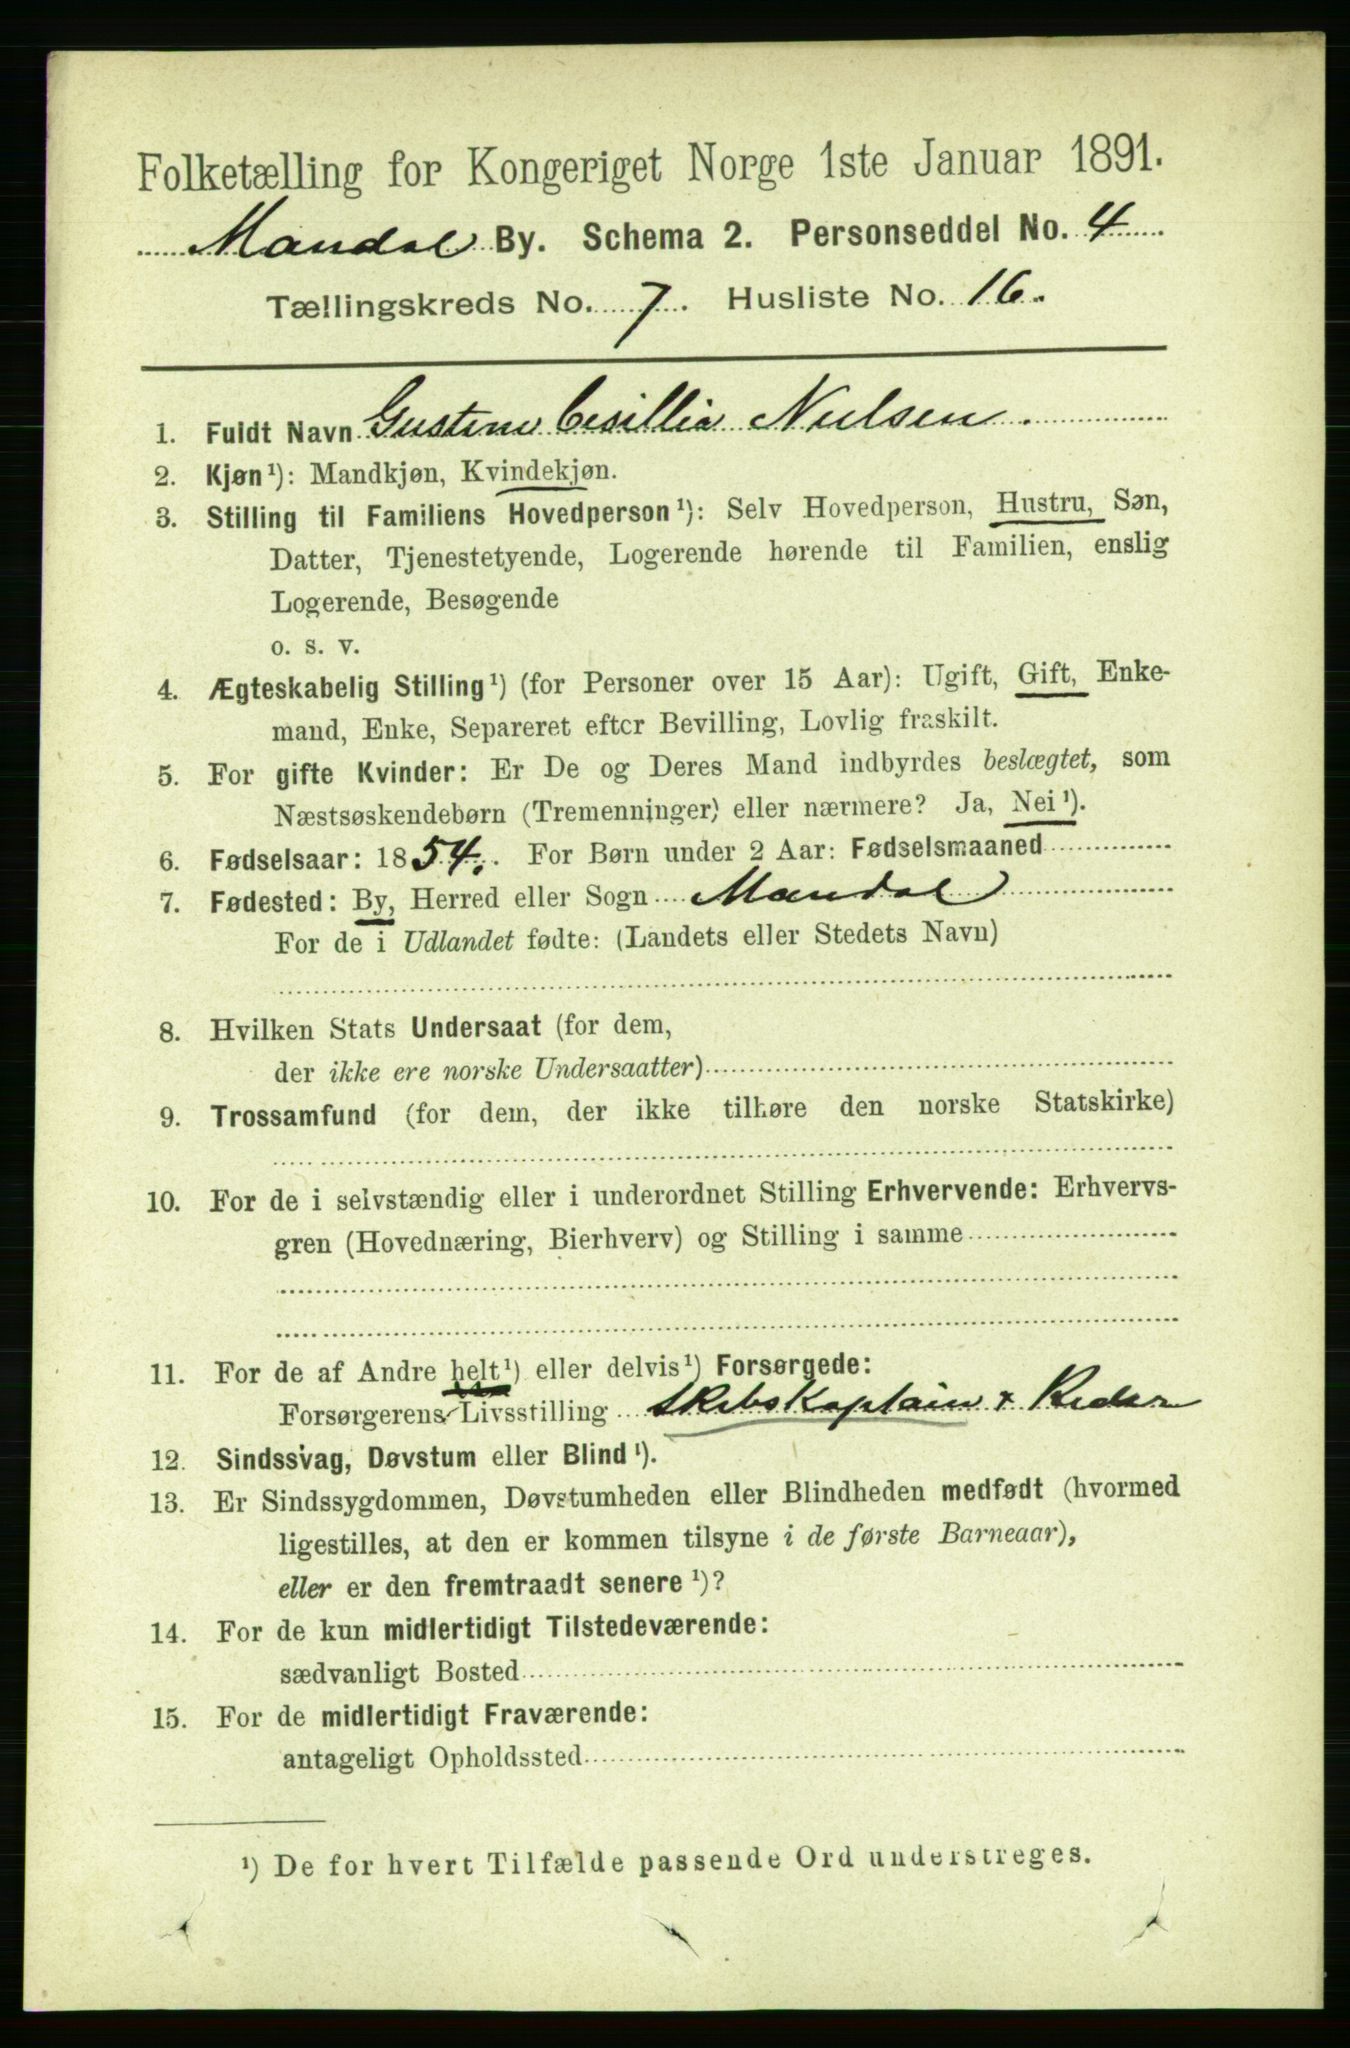 Folketælling for Kongeriget Norge 1ste Januar 1891.
Mandal By. Schema 2. Personseddel No. 4
Tællingskreds No. 7. Husliste No. 16.
1. Fuldt Navn Gustine Cesillia Nielsen.
2. Kjøn¹): Mandkjøn, Kvindekjøn.
3. Stilling til Familiens Hovedperson¹): Selv Hovedperson, Hustru, Søn,
Datter, Tjenestetyende, Logerende hørende til Familien, enslig
Logerende, Besøgende
o. s. v.
4. Ægteskabelig Stilling¹) (for Personer over 15 Aar): Ugift, Gift, Enke-
mand, Enke, Separeret efter Bevilling, Lovlig fraskilt.
5. For gifte Kvinder: Er De og Deres Mand indbyrdes beslægtet, som
Næstsøskendebørn (Tremenninger) eller nærmere? Ja, Nei¹).
6. Fødselsaar: 1854. For Børn under 2 Aar: Fødselsmaaned
7. Fødested: By, Herred eller Sogn Mandal
For de i Udlandet fødte: (Landets eller Stedets Navn)
8. Hvilken Stats Undersaat (for dem,
der ikke ere norske Undersaatter)
9. Trossamfund (for dem, der ikke tilhøre den norske Statskirke)
10. For de i selvstændig eller i underordnet Stilling Erhvervende: Erhvervs-
gren (Hovednæring, Bierhverv) og Stilling i samme
11. For de af Andre helt¹) eller delvis¹) Forsørgede:
Forsørgerens Livsstilling Skibskaptain & Reder
12. Sindssvag, Døvstum eller Blind¹).
13. Er Sindssygdommen, Døvstumheden eller Blindheden medfødt (hvormed
ligestilles, at den er kommen tilsyne i de første Barneaar),
eller er den fremtraadt senere¹)?
14. For de kun midlertidigt Tilstedeværende:
sædvanligt Bosted
15. For de midlertidigt Fraværende:
antageligt Opholdssted
¹) De for hvert Tilfælde passende Ord understreges.